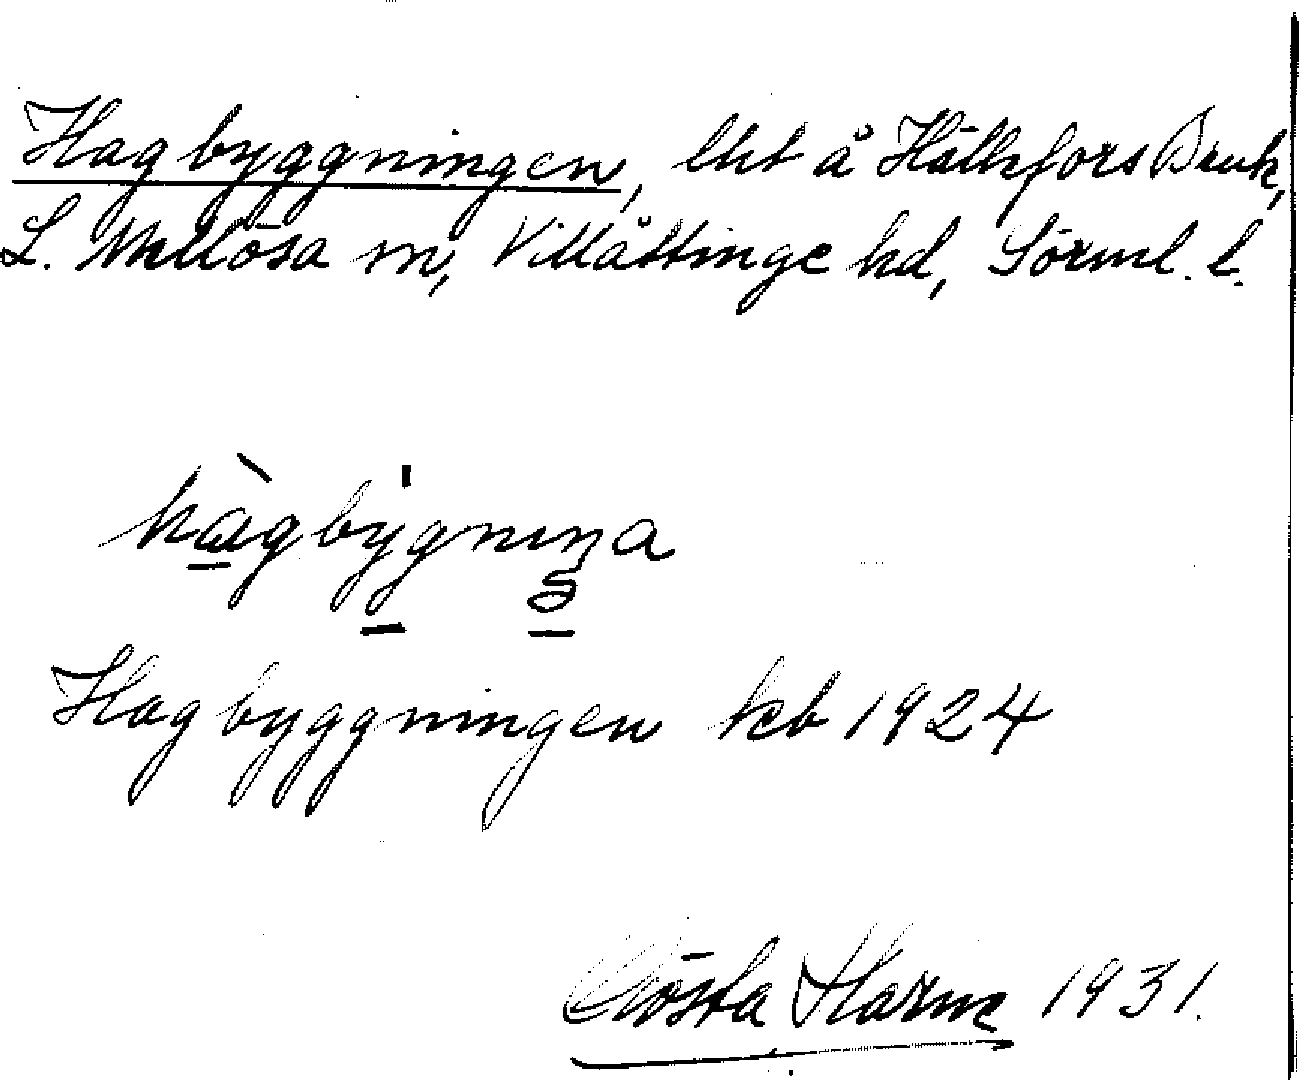 Hagbyggningen, lht å Hälleforsbruk,
L. Mellösa sn, Villåttinge hd, Sörml. l.
hagbygnıŋa
Hagbyggningen kb 1924
Gösta Harme 1931.